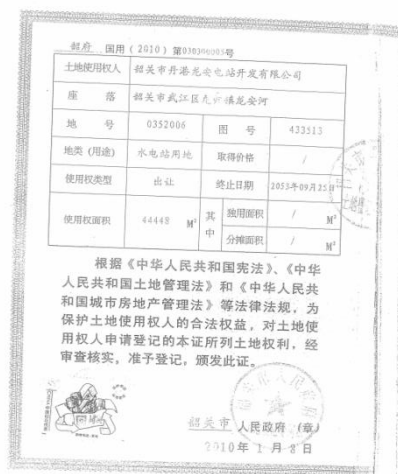 韶府 国用（2010）第030300005号
土地使用权人 韶关市丹港龙安电站开发有限公司
座 落 韶关市武江区龙归镇龙安河
地 号 0352006 图 号 433513
地类（用途） 水电站用地 取得价格 /
使用权类型 出让 终止日期 2053年09月25日
使用权面积 44448 M² 其中 独用面积 / M²
分摊面积 / M²
根据《中华人民共和国宪法》、《中华
人民共和国土地管理法》和《中华人民共
和国城市房地产管理法》等法律法规，为
保护土地使用权人的合法权益，对土地使
用权人申请登记的本证所列土地权利，经
审查核实，准予登记，颁发此证。
韶关市 人民政府（章）
2010年 1 月 8 日